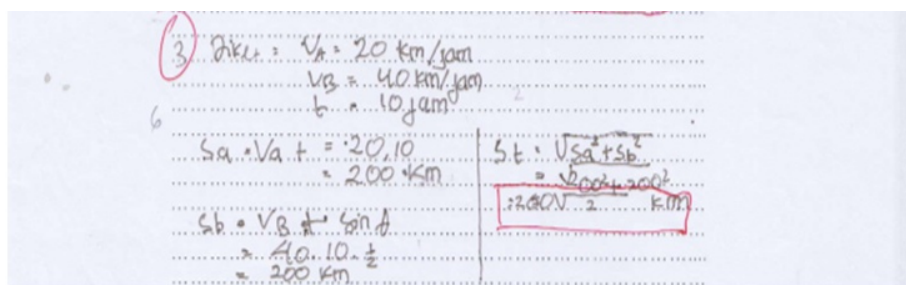 3 Diket = VA = 20 km/jam
VB = 40 km/jam
t = 10 jam
6
Sa = Va t = 20.10
= 200 km
Sb = VB t sin A
= 40.10.½
= 200 km
St = √Sa²+Sb²
= √200²+200²
= 200√2 km